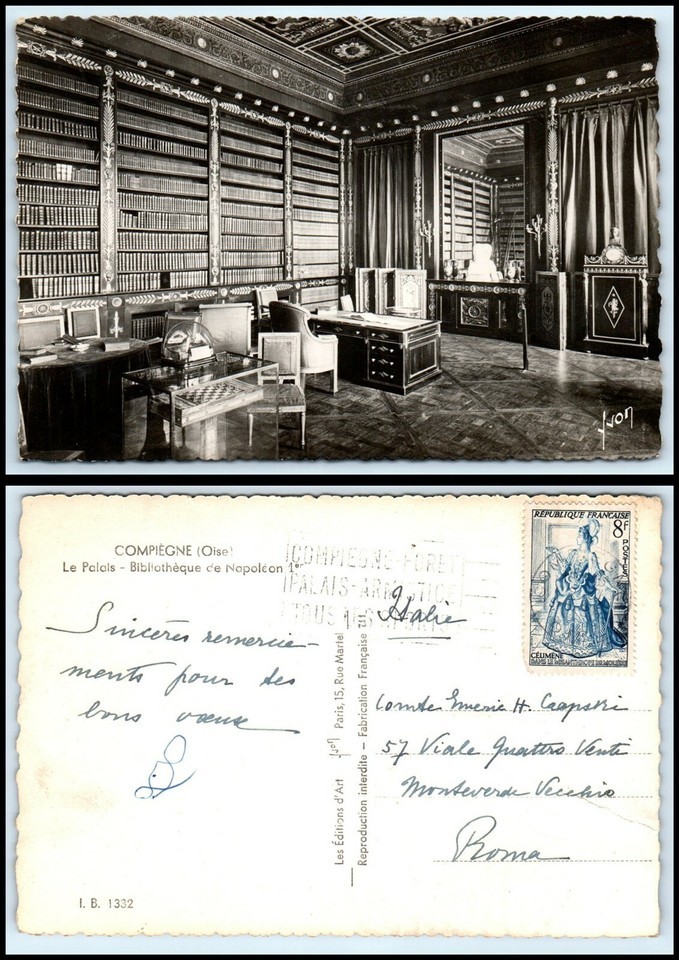 Yvon
COMPIÈGNE (Oise)
Le Palais - Bibliothèque de Napoléon 1er
COMPIEGNE-FORET
PALAIS-ARMISTICE
TOUS
RÉPUBLIQUE FRANÇAISE
8F
POSTES
CÉLIMÈNE
DANS LE MISANTHROPE DE MOLIÈRE
Italie
Sincères remercie-
ments pour tes
bons vœux
Comte Emeric H. Czapski
57 Viale Quattro Venti
Monteverde Vecchio
Roma
Les Éditions d'Art Yvon Paris, 15, Rue Martel
Reproduction interdite - Fabrication Française
I. B. 1332